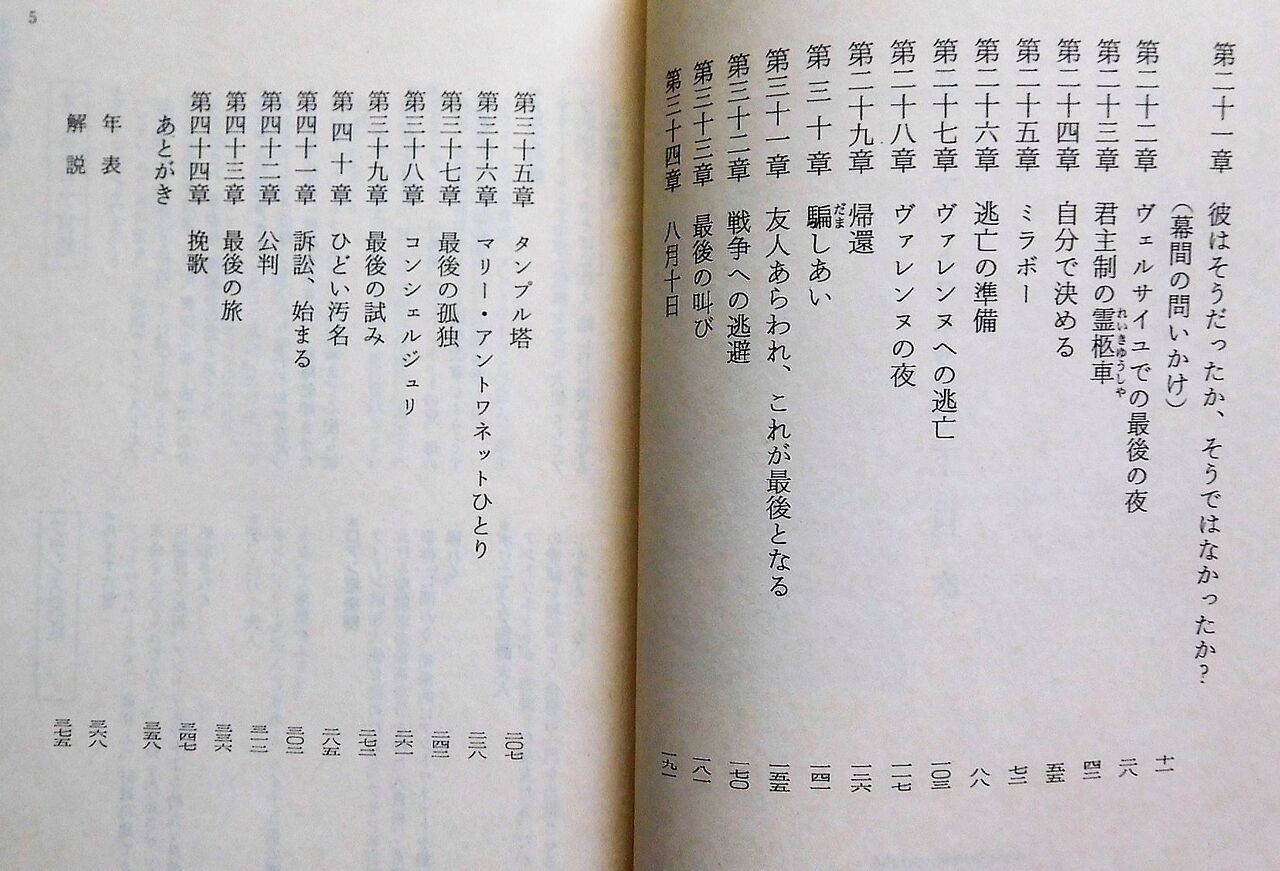 第二十一章 彼はそうだったか、そうではなかったか?
(幕間の問いかけ) 十一
第二十二章 ヴェルサイユでの最後の夜 二八
れいきゆうしや
第二十三章 君主制の霊柩車 四三
第二十四章 自分で決める 五五
第二十五章 ミラボー 七二
第二十六章 逃亡の準備 八八
第二十七章 ヴァレンヌへの逃亡 一〇三
第二十八章 ヴァレンヌの夜 一一七
第二十九章 帰還 一二六
だま
第三十章 騙しあい 一四一
第三十一章 友人あらわれ、これが最後となる 一五五
第三十二章 戦争への逃避 一七〇
第三十三章 最後の叫び 一八一
第三十四章 八月十日 一九一
第三十五章 タンプル塔 二〇七
第三十六章 マリー・アントワネットひとり 二二八
第三十七章 最後の孤独 二四二
第三十八章 コンシェルジュリ 二六一
第三十九章 最後の試み 二七二
第四十章 ひどい汚名 二八五
第四十一章 訴訟、始まる 三〇二
第四十二章 公判 三一二
第四十三章 最後の旅 三三六
第四十四章 挽歌 三四七
あとがき 三五八
年表 三六八
解説 三七五
5